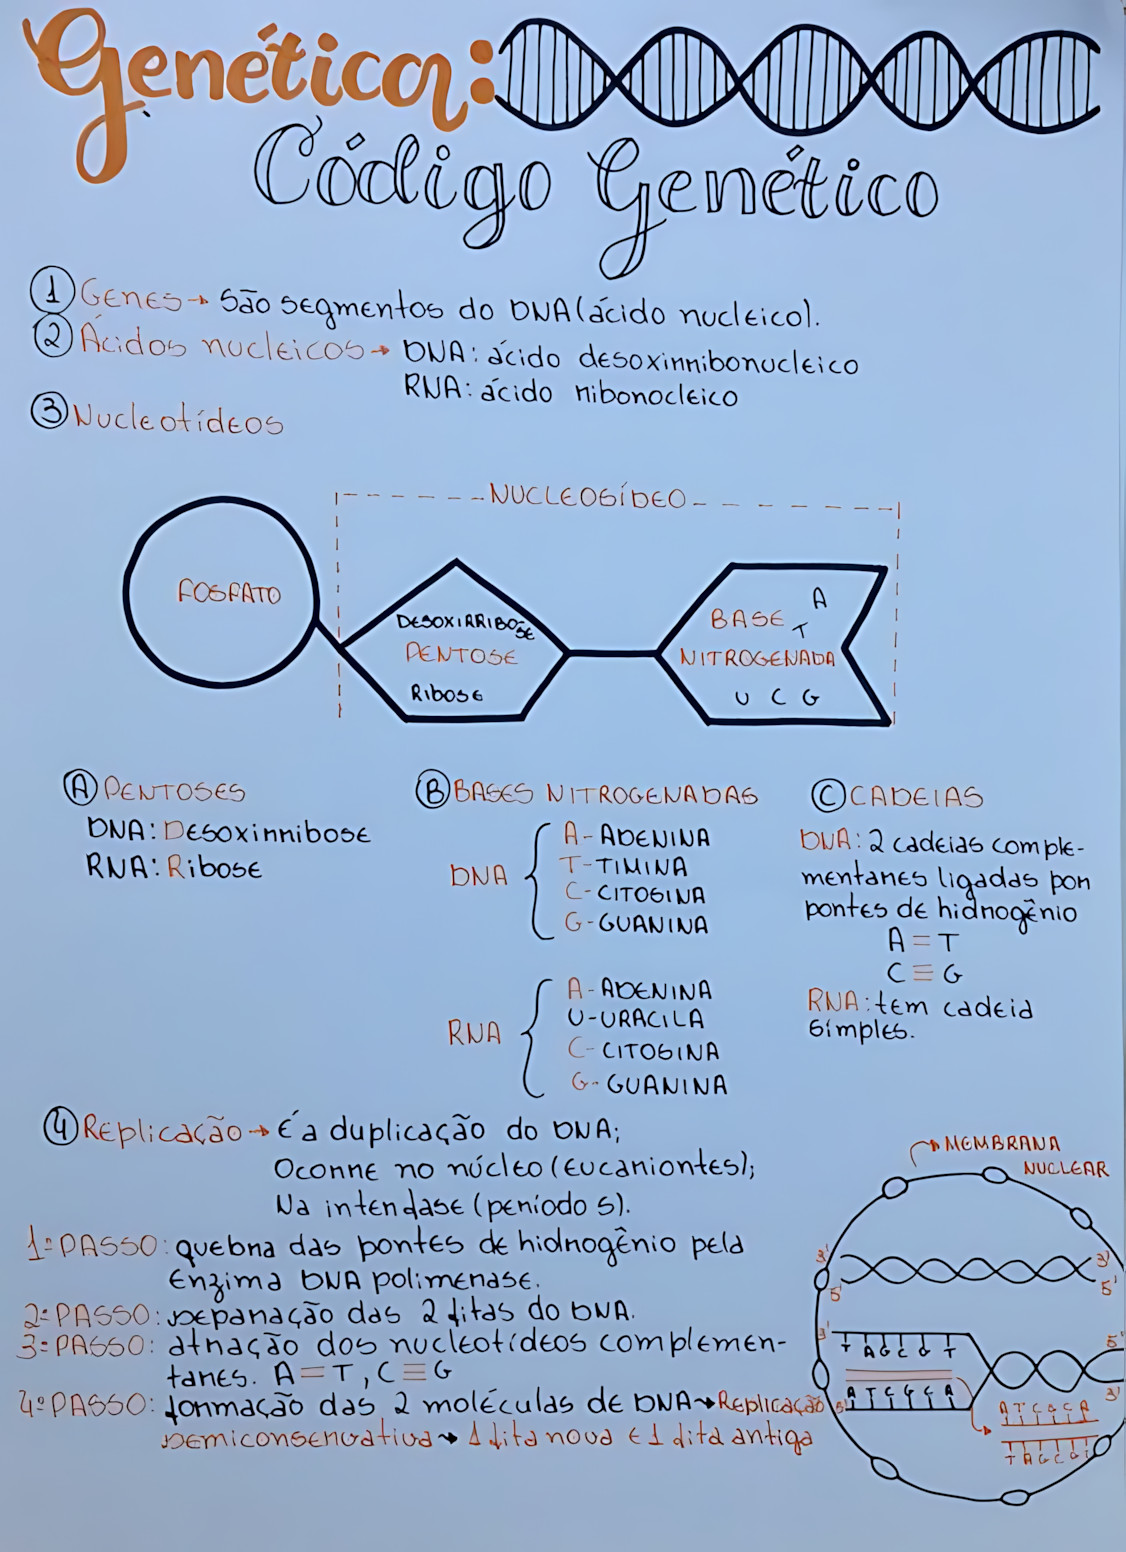 Genética:
Código Genético
1 Genes → são segmentos do DNA (ácido nucleico).
2 Ácidos nucleicos → DNA: ácido desoxirribonucleico
RNA: ácido ribonocleico
3 Nucleotídeos
NUCLEOSÍDEO
FOSFATO
DESOXIRRIBOSE
PENTOSE
RIBOSE
BASE A
T
NITROGENADA
U C G
A PENTOSES
DNA: Desoxirribose
RNA: Ribose
B BASES NITROGENADAS
DNA
A - ADENINA
T - TIMINA
C - CITOSINA
G - GUANINA
RNA
A - ADENINA
U - URACILA
C - CITOSINA
G - GUANINA
C CADEIAS
DNA: 2 cadeias comple-
mentares ligadas por
pontes de hidrogênio
A = T
C ≡ G
RNA: tem cadeia
simples.
4 Replicação → É a duplicação do DNA;
Ocorre no núcleo (eucariontes);
Na interfase (período S).
1º PASSO: quebra das pontes de hidrogênio pela
enzima DNA polimerase.
2º PASSO: separação das 2 fitas do DNA.
3º PASSO: atração dos nucleotídeos complemen-
tares. A = T, C ≡ G
4º PASSO: formação das 2 moléculas de DNA → Replicação
semiconservativa → 1 fita nova e 1 fita antiga
MEMBRANA
NUCLEAR
3' 3'
5' 5'
3' 5'
T A G C G T
A T C G C A
5' 3'
A T C G C A
T A G C G T